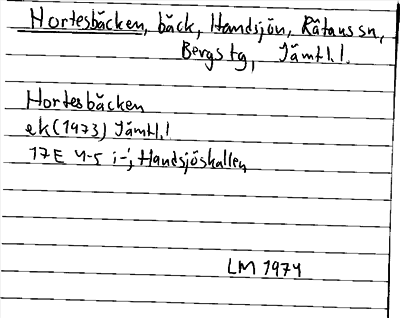 Hortesbäcken, bäck, Handsjön, Rätans sn,
Bergs tg, Jämtl. l.
Hortesbäcken
ek (1973) Jämtl. l
17E 4-5 i-j, Handsjöskallen
LM 1974